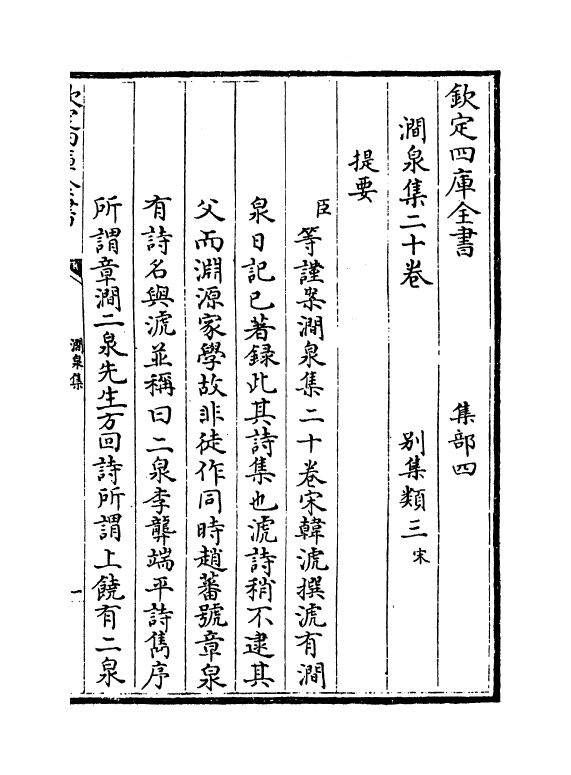 欽定四庫全書　集部四
澗泉集二十卷　别集類三宋
提要
臣等謹案澗泉集二十卷宋韓淲撰淲有澗
泉日記已著録此其詩集也淲詩稍不逮其
父而淵源家學故非徒作同時趙蕃號章泉
有詩名與淲並稱曰二泉李龏端平詩雋序
所謂章澗二泉先生方回詩所謂上饒有二泉
欽定四庫全書
澗泉集
一